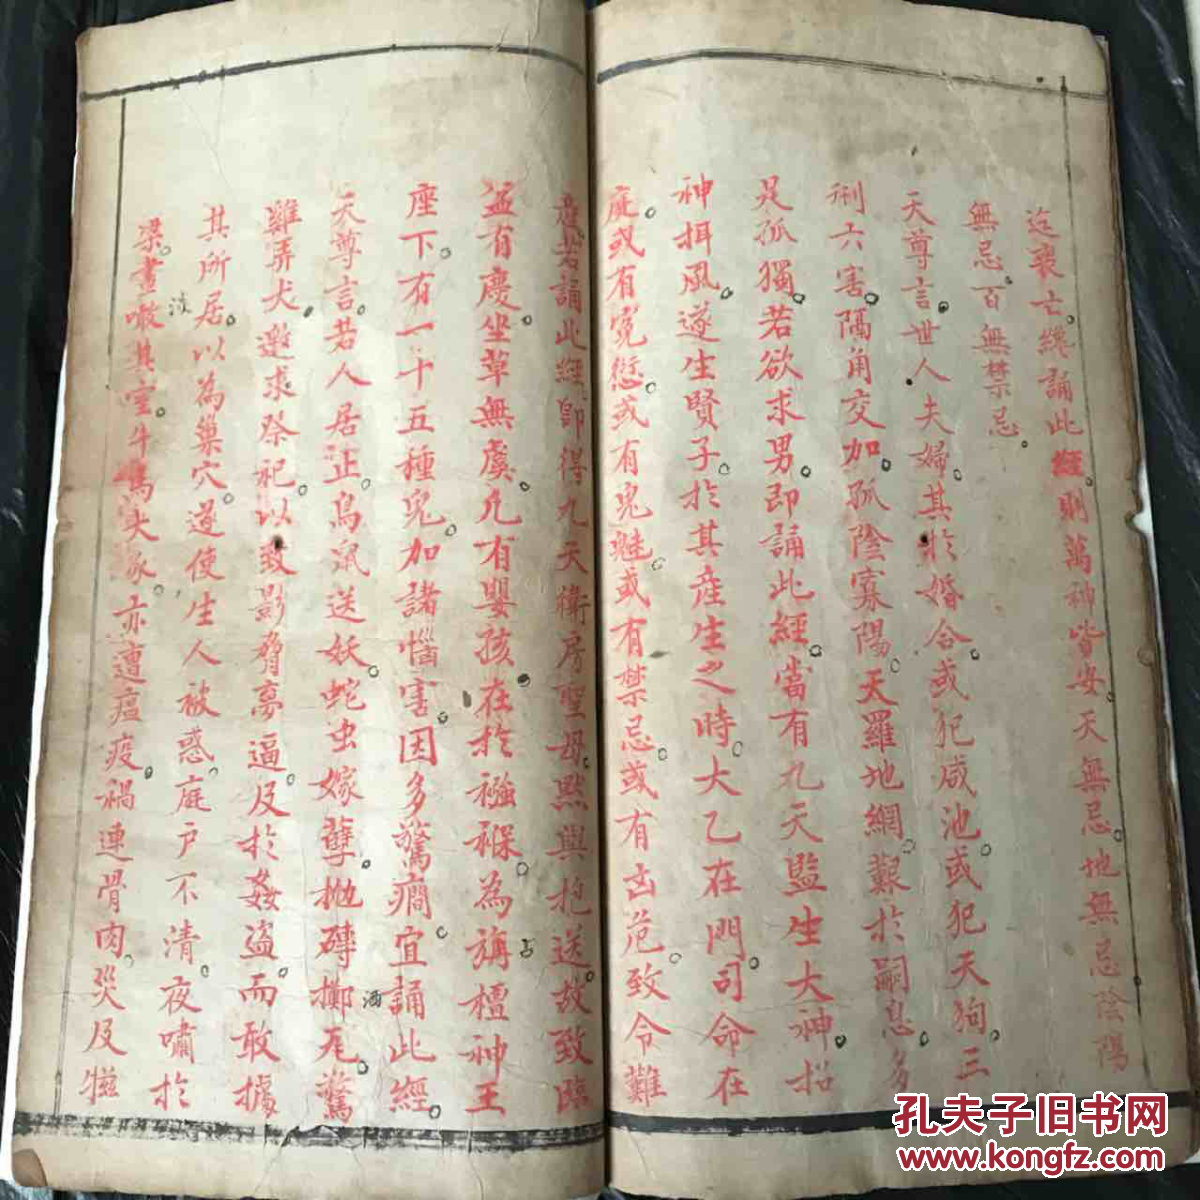 迄裵亡纔誦此經則萬神皆安天無忌地無忌陰陽
無忌百無禁忌
天尊言世人夫婦其於婚合或犯咸池或犯天狗三
刑六害隔角交加孤陰寡陽天羅地網艱於嗣息多
是孤獨若欲求男即誦此經當有九天監生大神招
神揖風遂生賢子於其産生之時大乙在門司命在
庭或有寃愆或有鬼魅或有禁忌或有凶危致令難
産若誦此經即得九天衛房聖母默與抱送故致臨
盆有慶坐草無虞凡有嬰孩在於襁褓為旃檀神王
座下有一十五種鬼加諸惱害因多驚癎宜誦此經
天尊言若人居止鳥鼠送妖蛇虫嫁孽抛磚擲瓦驚
雞弄犬邀求祭祀以致影脅夢逼及於姦盜而敢據
其所居以為巢穴遂使生人被惑庭户不清夜嘯於
梁晝瞰其室牛馬犬豕亦遭瘟疫禍連骨肉災及牲
占
孔夫子旧书网
www.kongfz.com